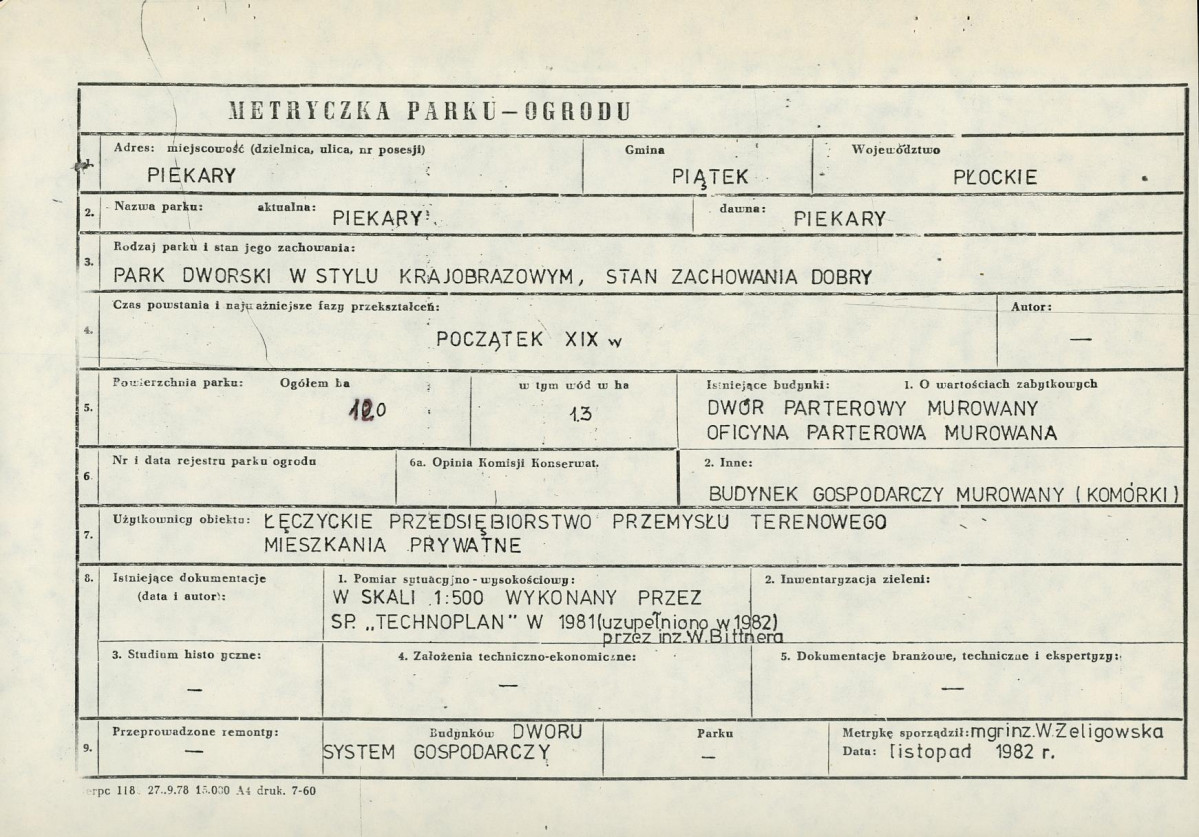 METRYCZKA PARKU-OGRODU
1. Adres: miejscowość (dzielnica, ulica, nr posesji) Gmina Województwo
PIEKARY PIĄTEK PŁOCKIE
2. Nazwa parku: aktualna: PIEKARY dawna: PIEKARY
3. Rodzaj parku i stan jego zachowania:
PARK DWORSKI W STYLU KRAJOBRAZOWYM, STAN ZACHOWANIA DOBRY
4. Czas powstania i najważniejsze fazy przekształceń: Autor:
POCZĄTEK XIX w —
5. Powierzchnia parku: Ogółem ha w tym wód w ha Istniejące budynki: 1. O wartościach zabytkowych
1.3 DWÓR PARTEROWY MUROWANY
OFICYNA PARTEROWA MUROWANA
6. Nr i data rejestru parku ogrodu 6a. Opinia Komisji Konserwat. 2. Inne:
BUDYNEK GOSPODARCZY MUROWANY (KOMÓRKI)
7. Użytkownicy obiektu: ŁĘCZYCKIE PRZEDSIĘBIORSTWO PRZEMYSŁU TERENOWEGO
MIESZKANIA PRYWATNE
8. Istniejące dokumentacje 1. Pomiar sytuacyjno-wysokościowy: 2. Inwentaryzacja zieleni:
(data i autor): W SKALI 1:500 WYKONANY PRZEZ
SP. „TECHNOPLAN" W 1981 (uzupełniono w 1982)
przez inż. W. Bittnera
3. Studium histo yczne: 4. Założenia techniczno-ekonomiczne: 5. Dokumentacje branżowe, techniczne i ekspertyzy:
— — —
9. Przeprowadzone remonty: Budynków DWORU Parku Metrykę sporządził: mgr inż. W. Żeligowska
— SYSTEM GOSPODARCZY — Data: listopad 1982 r.
erpc 118. 27.9.78 15.000 A4 druk. 7-60